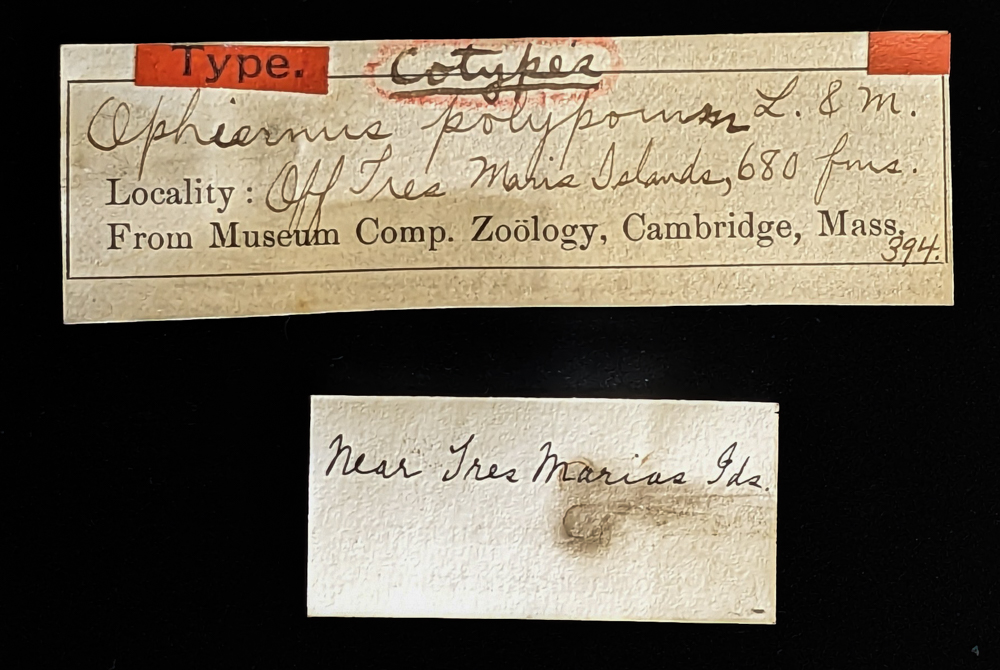 Type. Cotypes
Ophiernus polyporum L. & M.
Locality: Off Tres Maris Islands, 680 fms.
From Museum Comp. Zoölogy, Cambridge, Mass.
394.
Near Tres Marias Ids.